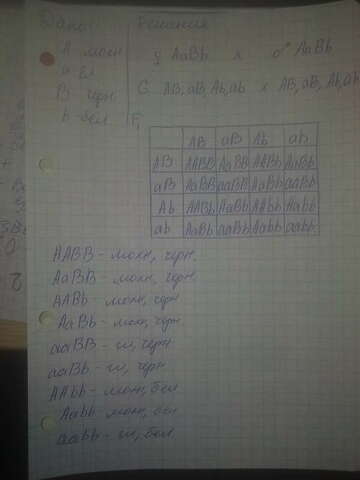 Дано: Решение
A мохн ♀ AaBb x ♂ AaBb
a гл G AB, aB, Ab, ab x AB, aB, Ab, ab
B черн
b - бел F₁
AB aB Ab ab
AB AABB AaBB AABb AaBb
aB AaBB aaBB AaBb aaBb
Ab AABb AaBb AAbb Aabb
ab AaBb aaBb Aabb aabb
AABB - мохн, черн.
AaBB - мохн, черн.
AABb - мохн, черн
AaBb - мохн, черн
aaBB - гл, черн
aaBb - гл, черн
AAbb - мохн, бел
Aabb - мохн, бел
aabb - гл, бел